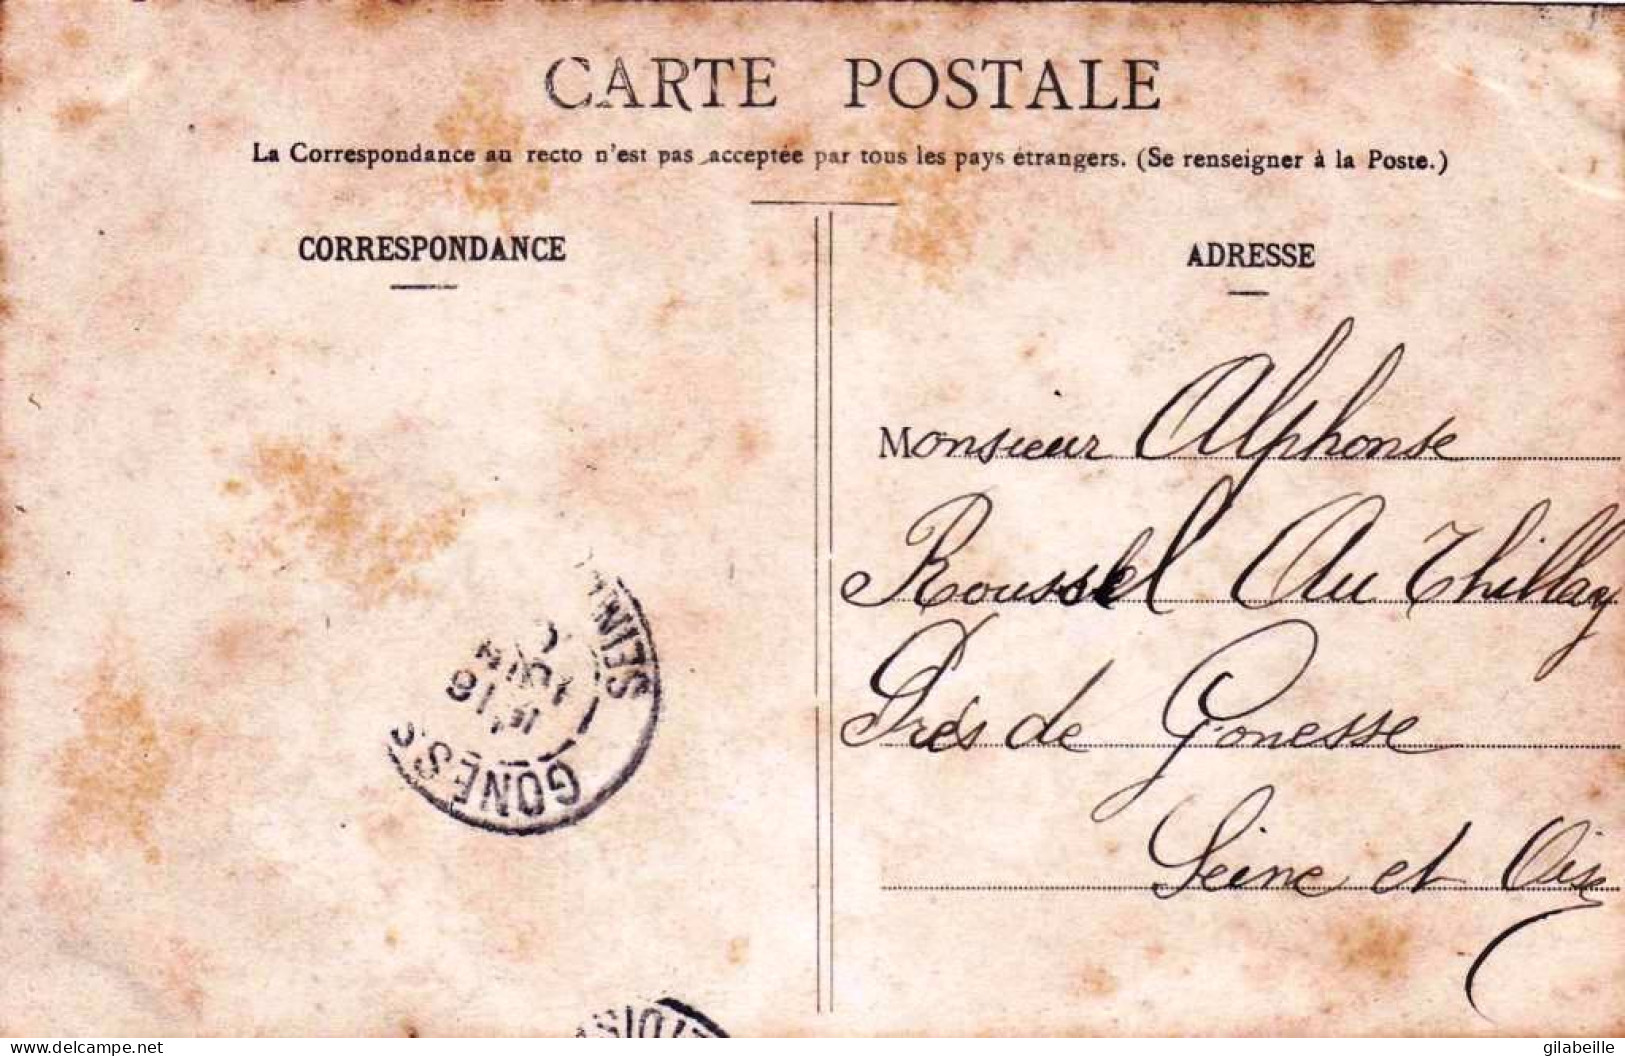 CARTE POSTALE
La Correspondance au recto n'est pas acceptée par tous les pays étrangers. (Se renseigner à la Poste.)
CORRESPONDANCE
ADRESSE
Monsieur Alphonse
Roussel Au Thillay
Près de Gonesse
Seine et Oise
GONES
delcampe.net
gilabeille